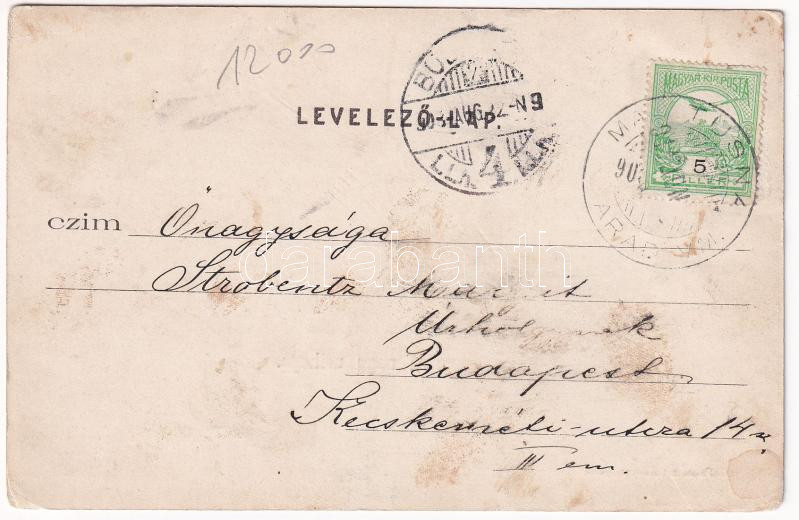 12000
LEVELEZŐ-LAP.
MAGYAR KIR. POSTA
5
FILLÉR
4
ARAD
czim Őnagysága
Strobentz Margit
Úrhölgynek
Budapest
Kecskeméti-utcza 14 sz.
III em.
darabanth